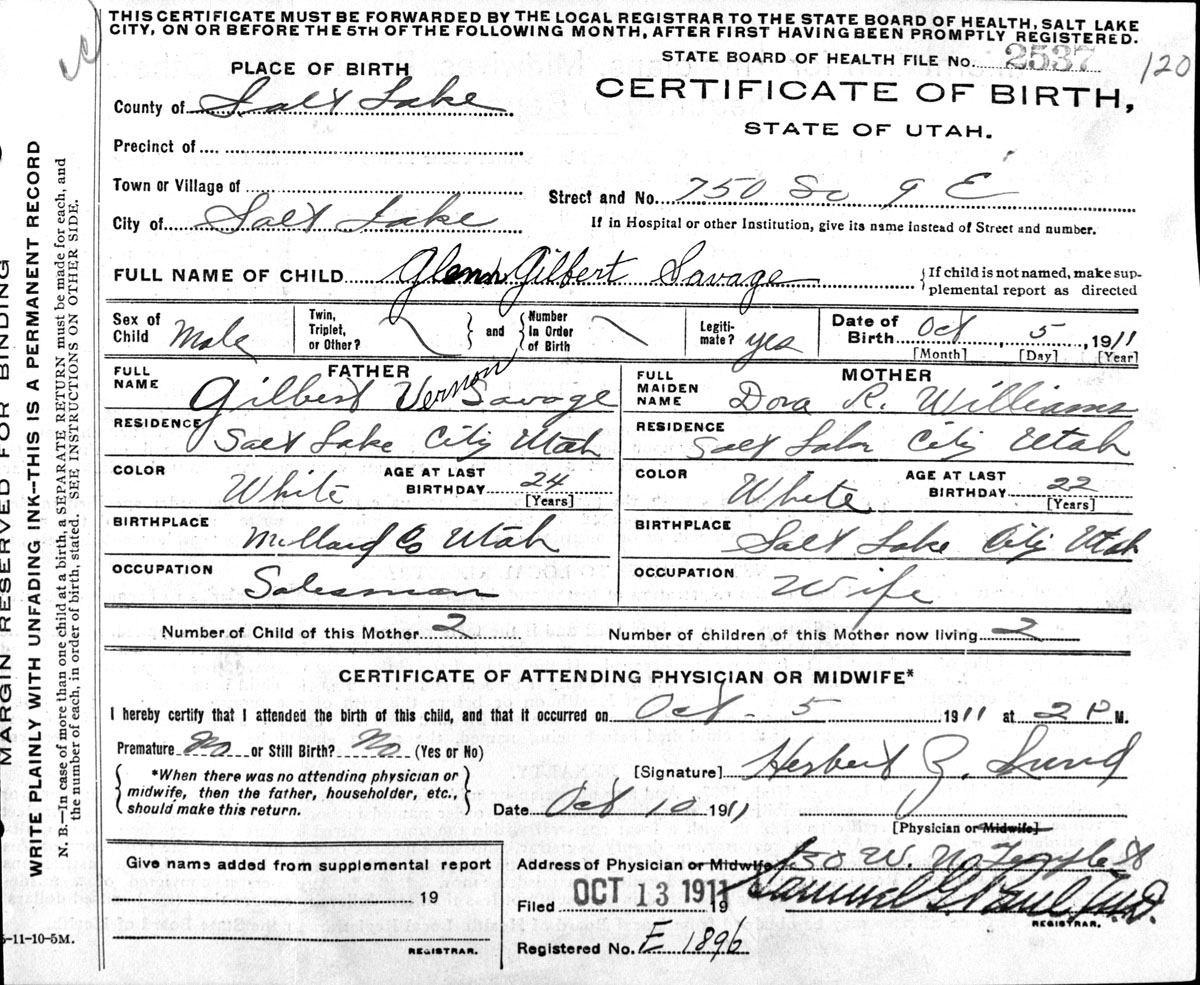 THIS CERTIFICATE MUST BE FORWARDED BY THE LOCAL REGISTRAR TO THE STATE BOARD OF HEALTH, SALT LAKE
CITY, ON OR BEFORE THE 5TH OF THE FOLLOWING MONTH, AFTER FIRST HAVING BEEN PROMPTLY REGISTERED.
STATE BOARD OF HEALTH FILE No. 2537 120
PLACE OF BIRTH
CERTIFICATE OF BIRTH,
County of Salt Lake
STATE OF UTAH.
Precinct of
Town or Village of
Street and No. 750 So 9 E
City of Salt Lake
If in Hospital or other Institution, give its name instead of Street and number.
FULL NAME OF CHILD Glenn Gilbert Savage
{If child is not named, make sup-
plemental report as directed
Sex of Child Male
Twin, Triplet, or Other? } and { Number In Order of Birth
Legiti-mate? yes
Date of Birth Oct 5, 1911
[Month] [Day] [Year]
FATHER
FULL NAME Gilbert Vernon Savage
RESIDENCE Salt Lake City Utah
COLOR White AGE AT LAST BIRTHDAY 24 [Years]
BIRTHPLACE Millard Co Utah
OCCUPATION Salesman
MOTHER
FULL MAIDEN NAME Dora R. Williams
RESIDENCE Salt Lake City Utah
COLOR White AGE AT LAST BIRTHDAY 22 [Years]
BIRTHPLACE Salt Lake City Utah
OCCUPATION Wife
Number of Child of this Mother 2 Number of children of this Mother now living 2
CERTIFICATE OF ATTENDING PHYSICIAN OR MIDWIFE*
I hereby certify that I attended the birth of this child, and that it occurred on Oct - 5 1911 at 2 P M.
Premature No or Still Birth? No (Yes or No)
{ *When there was no attending physician or
midwife, then the father, householder, etc.,
should make this return. }
[Signature] Herbert Z. Lund
Date Oct 10 1911
[Physician or Midwife]
Give name added from supplemental report
19
REGISTRAR.
Address of Physician or Midwife W. No Temple St
Filed OCT 13 1911 19 Samuel G. Paul
REGISTRAR.
Registered No. E 1896
MARGIN RESERVED FOR BINDING
WRITE PLAINLY WITH UNFADING INK--THIS IS A PERMANENT RECORD
N. B.--In case of more than one child at a birth, a SEPARATE RETURN must be made for each, and
the number of each, in order of birth, stated. SEE INSTRUCTIONS ON OTHER SIDE.
-11-10-5M.